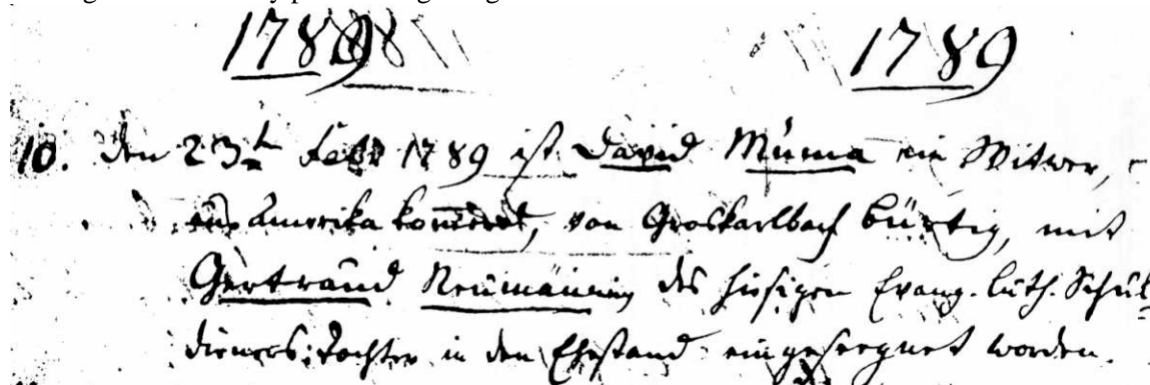 1789 1789
10. Den 23t Febr 1789 ist David Muma ein Witwer,
aus Amerika kommend, von Groskarlbach bürtig, mit
Gertraud Neumännin des hiesigen Evang. Luth. Schul
dieners Tochter in den Ehestand eingesegnet worden.